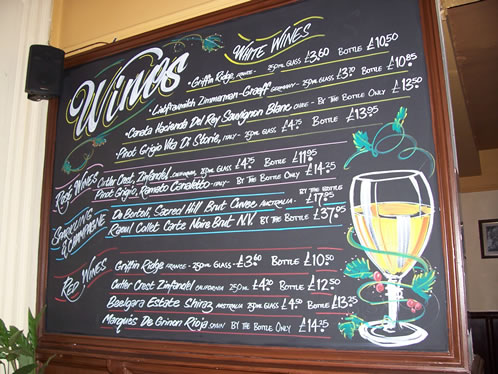 Wines
WHITE WINES
Griffin Ridge, FRANCE - 250ml GLASS £3.60 BOTTLE £10.50
Liebfraumilch Zimmerman-Graeff GERMANY - 250ml GLASS £3.70 BOTTLE £10.85
Canela Hacienda Del Rey Sauvignon Blanc CHILE - BY THE BOTTLE ONLY £13.50
Pinot Grigio Vita Di Storie, ITALY - 250ml GLASS £4.75 BOTTLE £13.95
ROSE WINES
Cutler Crest, Zinfandel, CALIFORNIA 250ml GLASS £4.25 BOTTLE £11.95
Pinot Grigio, Ramato Canaletto - ITALY - BY THE BOTTLE ONLY £14.25
SPARKLING & CHAMPAGNE
De Bortoli, Sacred Hill Brut Cuvee, AUSTRALIA - BY THE BOTTLE £17.95
Raoul Collet Carte Noire Brut N.V. BY THE BOTTLE £37.95
RED WINES
Griffin Ridge FRANCE - 250ml GLASS - £3.60 BOTTLE £10.50
Cutler Crest Zinfandel CALIFORNIA 250ml GLASS £4.20 BOTTLE £12.50
Beelgara Estate Shiraz, AUSTRALIA 250ml GLASS £4.50 BOTTLE £13.25
Marqués De Grinon Rioja SPAIN BY THE BOTTLE ONLY £14.25